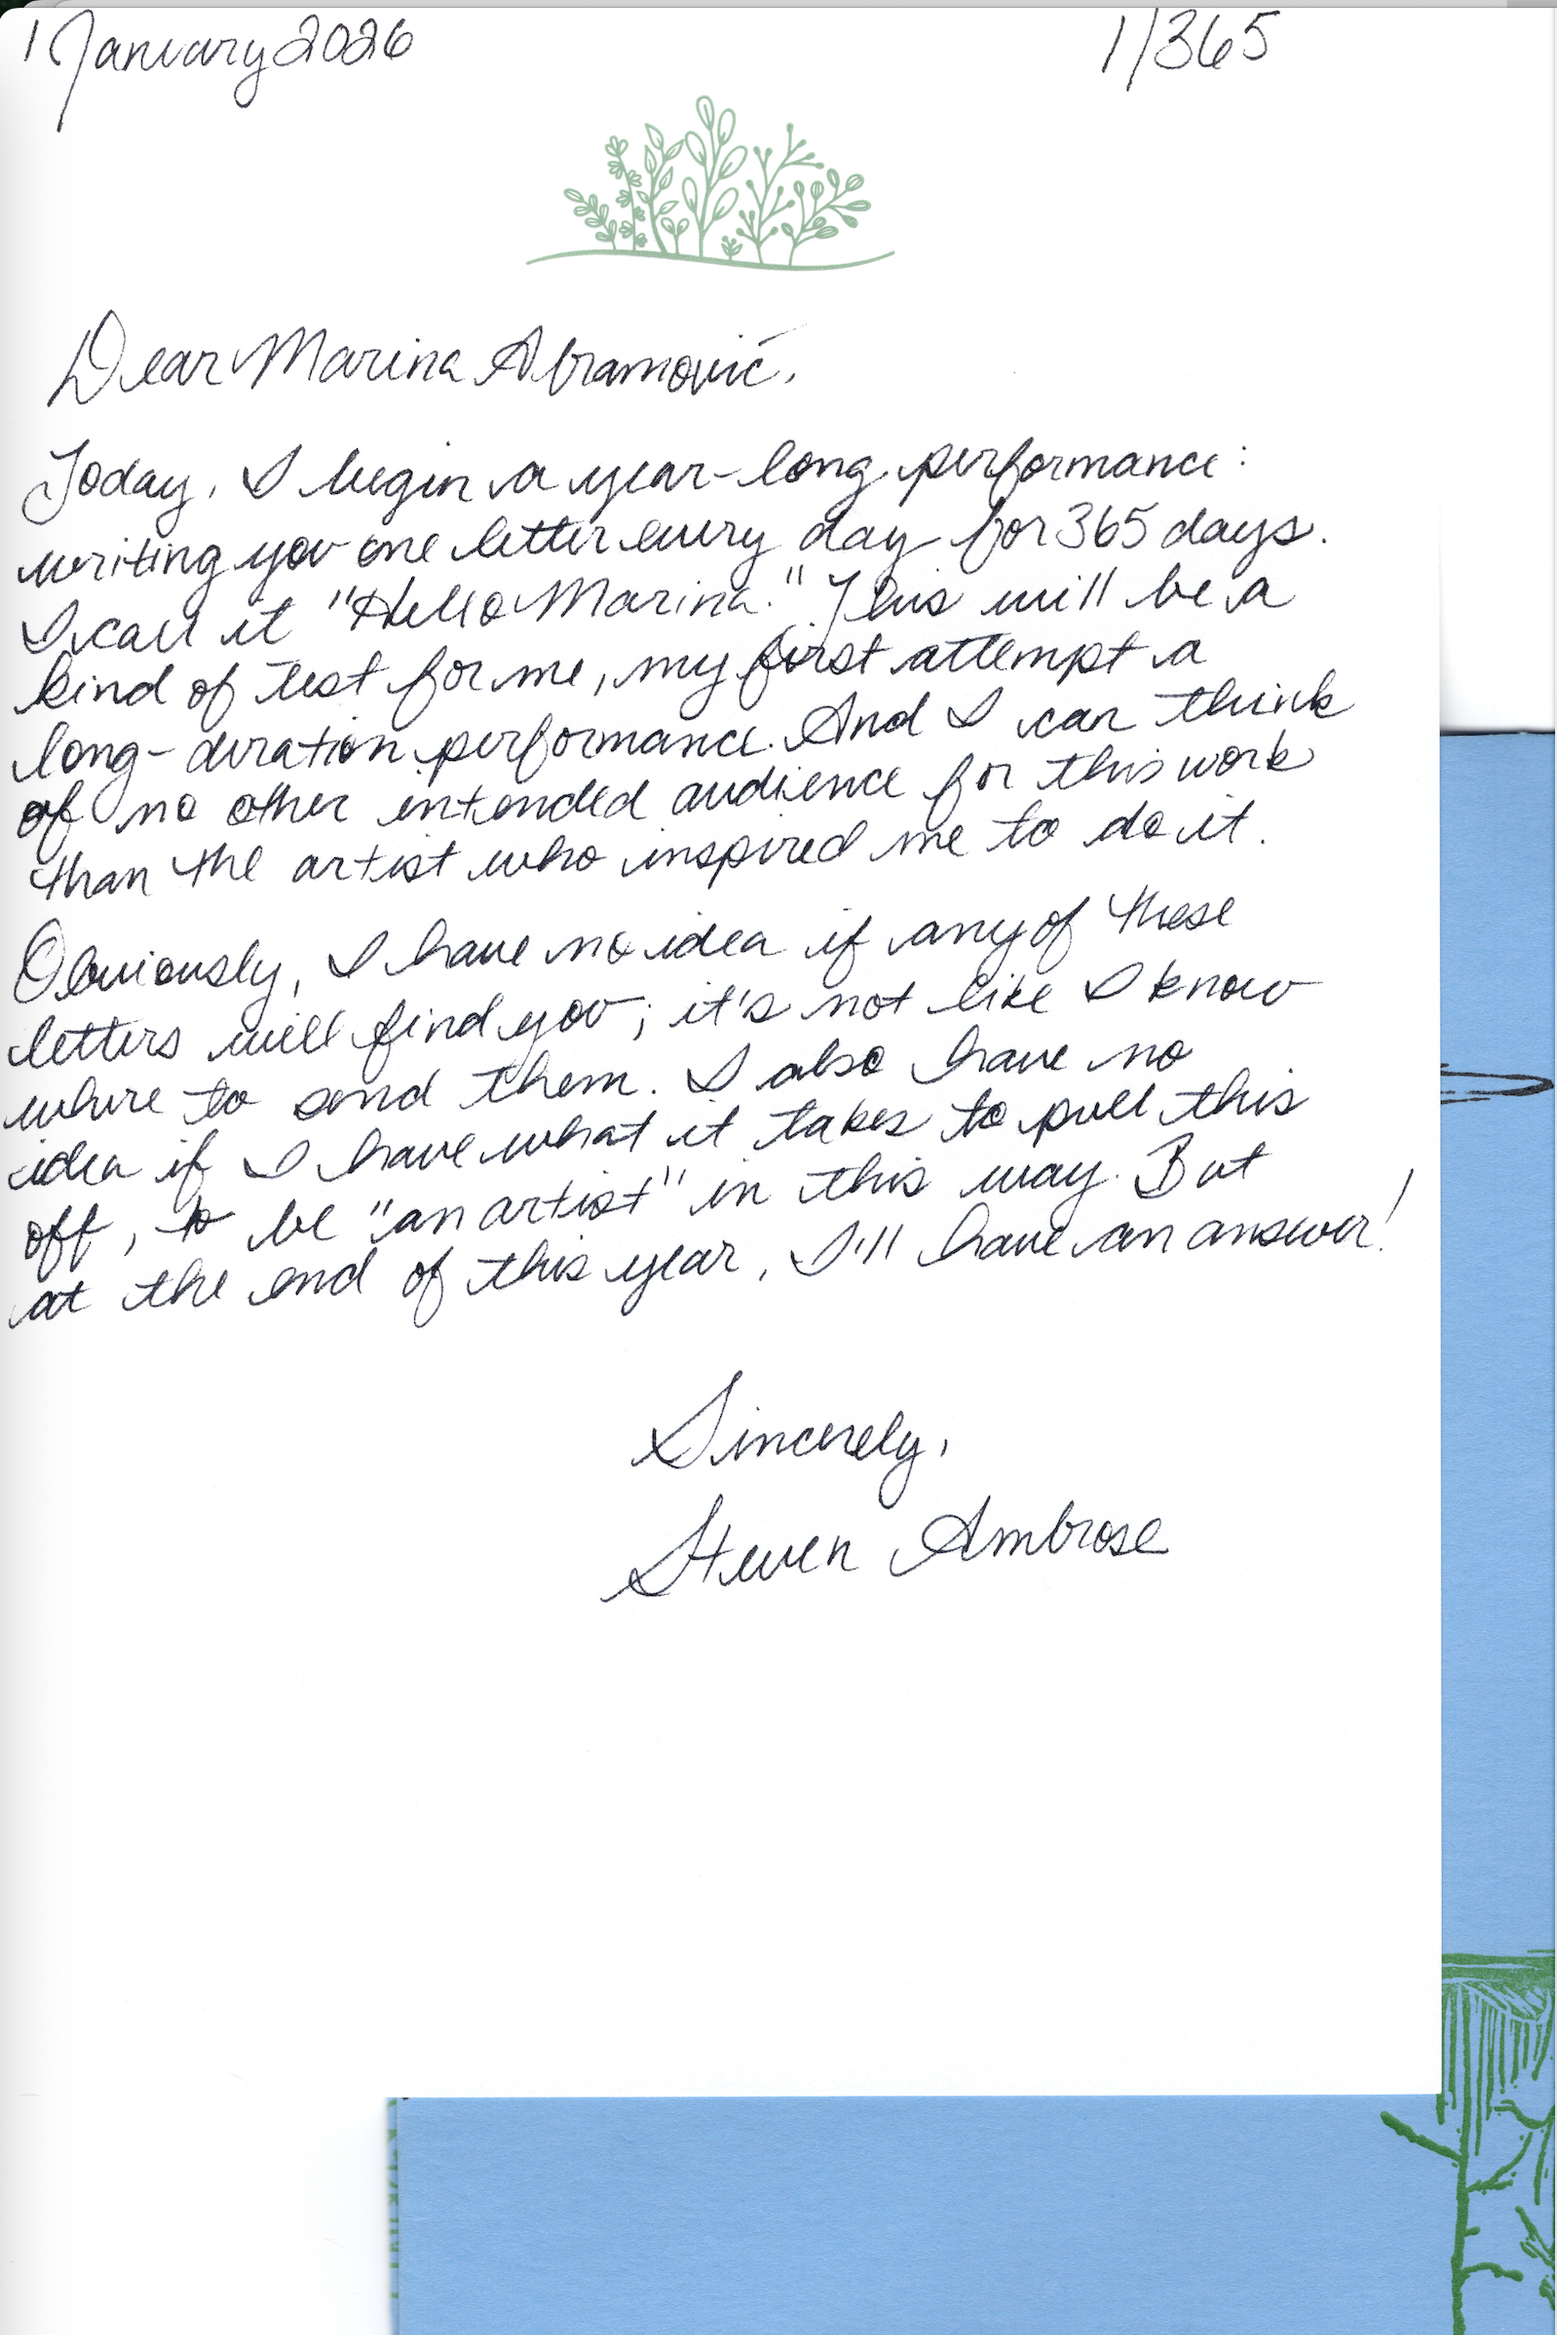 1 January 2026
1/365
Dear Marina Abramović,
Today, I begin a year-long performance:
writing you one letter every day for 365 days.
I call it "Hello Marina." This will be a
kind of test for me, my first attempt a
long-duration performance. And I can think
of no other intended audience for this work
than the artist who inspired me to do it.
Obviously, I have no idea if any of these
letters will find you; it's not like I know
where to send them. I also have no
idea if I have what it takes to pull this
off, to be "an artist" in this way. But
at the end of this year, I'll have an answer!
Sincerely,
Steven Ambrose